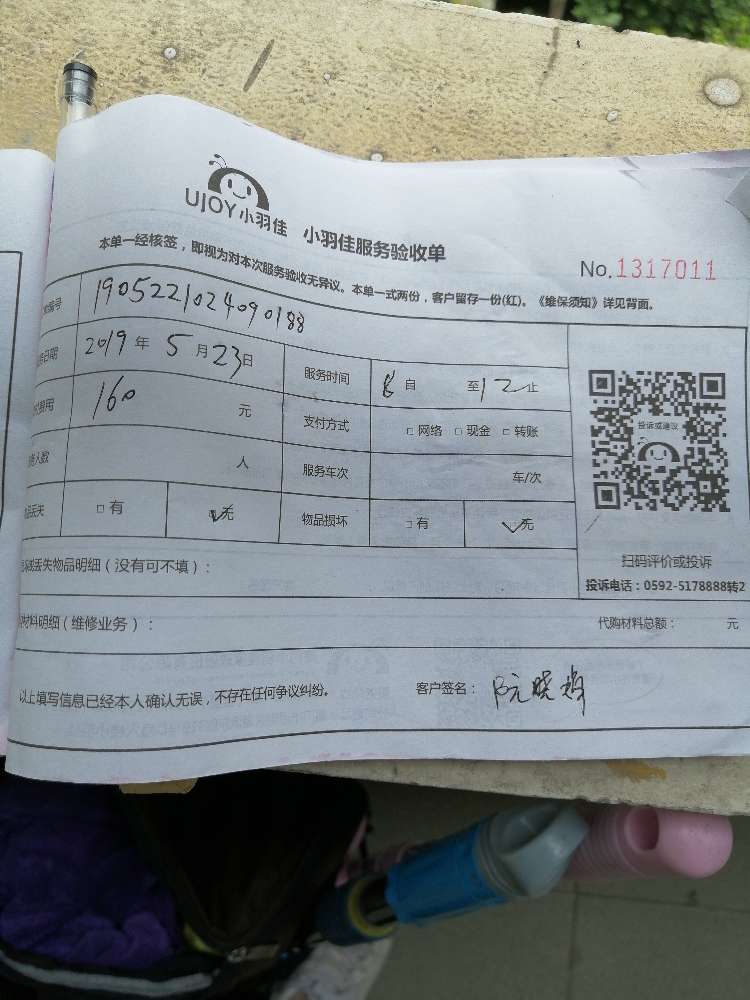 UJOY小羽佳 小羽佳服务验收单
No.1317011
本单一经核签，即视为对本次服务验收无异议。本单一式两份，客户留存一份(红)。《维保须知》详见背面。
编号 1905221024090188
日期 2019 年 5 月 23 日 服务时间 8 自 至 12 止
费用 160 元 支付方式 □ 网络 □ 现金 □ 转账
人数 人 服务车次 车/次
丢失 □ 有 ✓无 物品损坏 □ 有 ✓无
投诉或建议
扫码评价或投诉
投诉电话：0592-5178888转2
丢失物品明细（没有可不填）：
材料明细（维修业务）： 代购材料总额： 元
以上填写信息已经本人确认无误，不存在任何争议纠纷。 客户签名： 阮晓